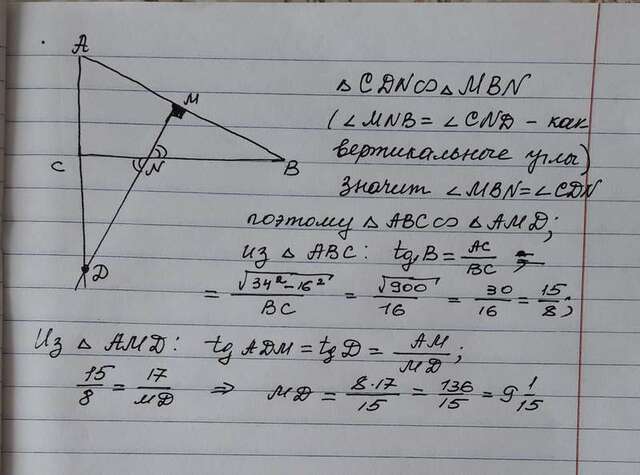 A
M
C
N
B
D
△CDN∞△MBN
(∠MNB=∠CND - как
вертикальные углы)
значит ∠MBN=∠CDN
поэтому △ABC∞△AMD.
Из △ABC: tgB = AC/BC =
= √(34²-16²)/BC = √900/16 = 30/16 = 15/8;
Из △AMD: tgADM = tgD = AM/MD;
15/8 = 17/MD ⇒ MD = 8·17/15 = 136/15 = 9 1/15